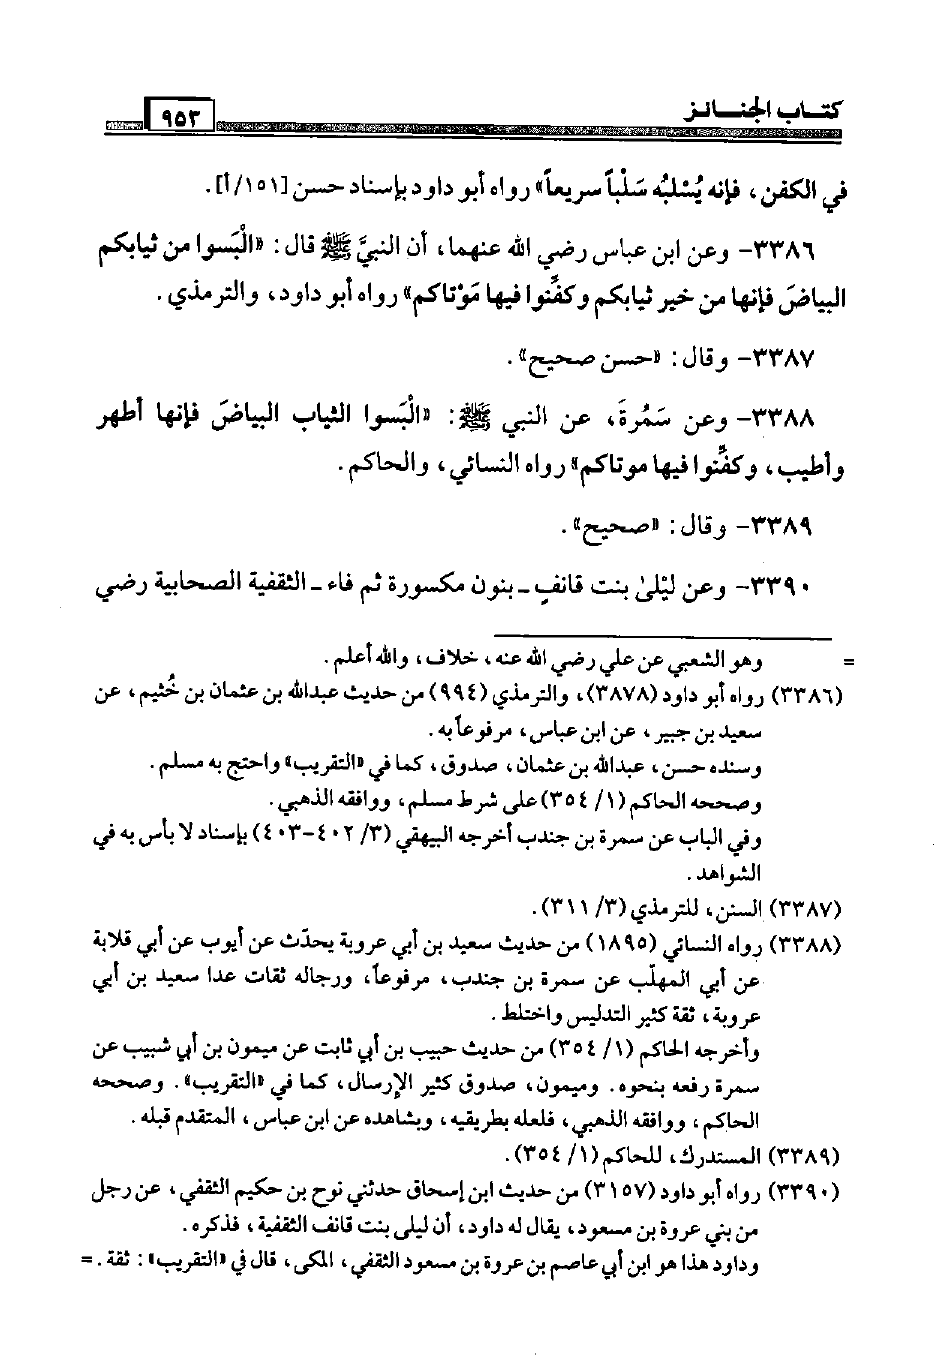 كتاب الجنائز
٩٥٣
في الكفن، فإنه يُسْلبُه سَلْباً سريعاً» رواه أبو داود بإسناد حسن [١٥١/أ].
٣٣٨٦- وعن ابن عباس رضي الله عنهما، أن النبيَّ ﷺ قال: «الْبَسوا من ثيابكم
البياضَ فإنها من خير ثيابكم وكفِّنوا فيها مَوْتاكم» رواه أبو داود، والترمذي.
٣٣٨٧- وقال: «حسن صحيح».
٣٣٨٨- وعن سَمُرةَ، عن النبي ﷺ: «الْبَسوا الثياب البياضَ فإنها أطهر
وأطيب، وكفِّنوا فيها موتاكم» رواه النسائي، والحاكم.
٣٣٨٩- وقال: «صحيح».
٣٣٩٠- وعن ليْلىٰ بنت قانفٍ ـ بنون مكسورة ثم فاء ـ الثقفية الصحابية رضي
= وهو الشعبي عن علي رضي الله عنه، خلاف، والله أعلم.
(٣٣٨٦) رواه أبو داود (٣٨٧٨)، والترمذي (٩٩٤) من حديث عبدالله بن عثمان بن خُثيم، عن
سعيد بن جبير، عن ابن عباس، مرفوعاً به.
وسنده حسن، عبدالله بن عثمان، صدوق، كما في «التقريب» واحتج به مسلم.
وصححه الحاكم (١/ ٣٥٤) على شرط مسلم، ووافقه الذهبي.
وفي الباب عن سمرة بن جندب أخرجه البيهقي (٣/ ٤٠٢-٤٠٣) بإسناد لا بأس به في
الشواهد.
(٣٣٨٧) السنن، للترمذي (٣/ ٣١١).
(٣٣٨٨) رواه النسائي (١٨٩٥) من حديث سعيد بن أبي عروبة يحدّث عن أيوب عن أبي قلابة
عن أبي المهلّب عن سمرة بن جندب، مرفوعاً، ورجاله ثقات عدا سعيد بن أبي
عروبة، ثقة كثير التدليس واختلط.
وأخرجه الحاكم (١/ ٣٥٤) من حديث حبيب بن أبي ثابت عن ميمون بن أبي شبيب عن
سمرة رفعه بنحوه. وميمون، صدوق كثير الإرسال، كما في «التقريب». وصححه
الحاكم، ووافقه الذهبي، فلعله بطريقيه، وبشاهده عن ابن عباس، المتقدم قبله.
(٣٣٨٩) المستدرك، للحاكم (١/ ٣٥٤).
(٣٣٩٠) رواه أبو داود (٣١٥٧) من حديث ابن إسحاق حدثني نوح بن حكيم الثقفي، عن رجل
من بني عروة بن مسعود، يقال له داود، أن ليلى بنت قانف الثقفية، فذكره.
وداود هذا هو ابن أبي عاصم بن عروة بن مسعود الثقفي، المكي، قال في «التقريب»: ثقة. =